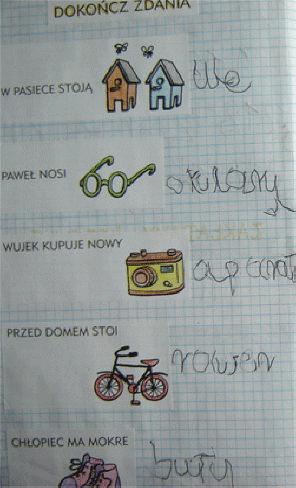 DOKOŃCZ ZDANIA
W PASIECE STOJĄ ule
PAWEŁ NOSI okulary
WUJEK KUPUJE NOWY aparat
PRZED DOMEM STOI rower
CHŁOPIEC MA MOKRE buty